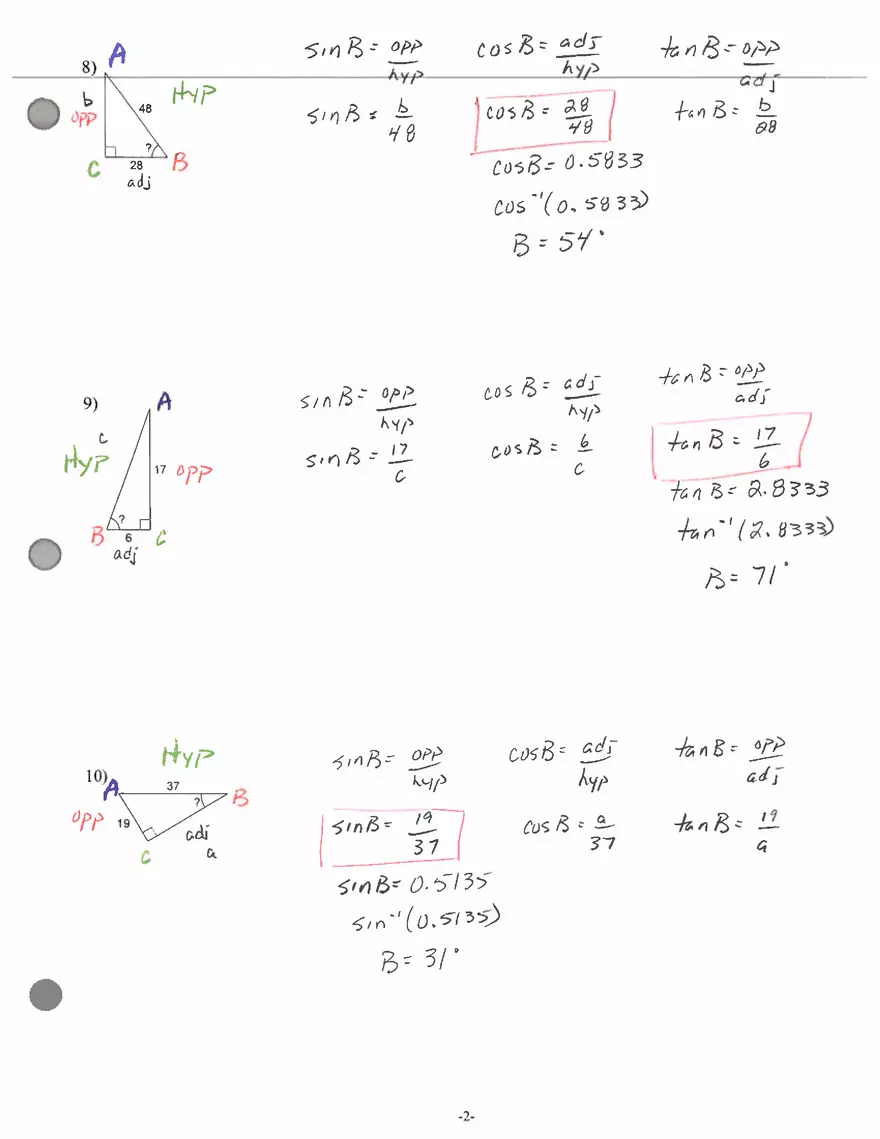 8)
A
b
opp
48
Hyp
?
C
28
B
adj
sin B = opp/hyp
sin B = b/48
cos B = adj/hyp
cos B = 28/48
cos B = 0.5833
cos⁻¹(0.5833)
B = 54°
tan B = opp/adj
tan B = b/28
9)
A
c
Hyp
17 opp
?
B
6
C
adj
sin B = opp/hyp
sin B = 17/c
cos B = adj/hyp
cos B = 6/c
tan B = opp/adj
tan B = 17/6
tan B = 2.8333
tan⁻¹(2.8333)
B = 71°
10)
Hyp
A
37
?
B
opp 19
adj
C
a
sin B = opp/hyp
sin B = 19/37
sin B = 0.5135
sin⁻¹(0.5135)
B = 31°
cos B = adj/hyp
cos B = a/37
tan B = opp/adj
tan B = 19/a
-2-